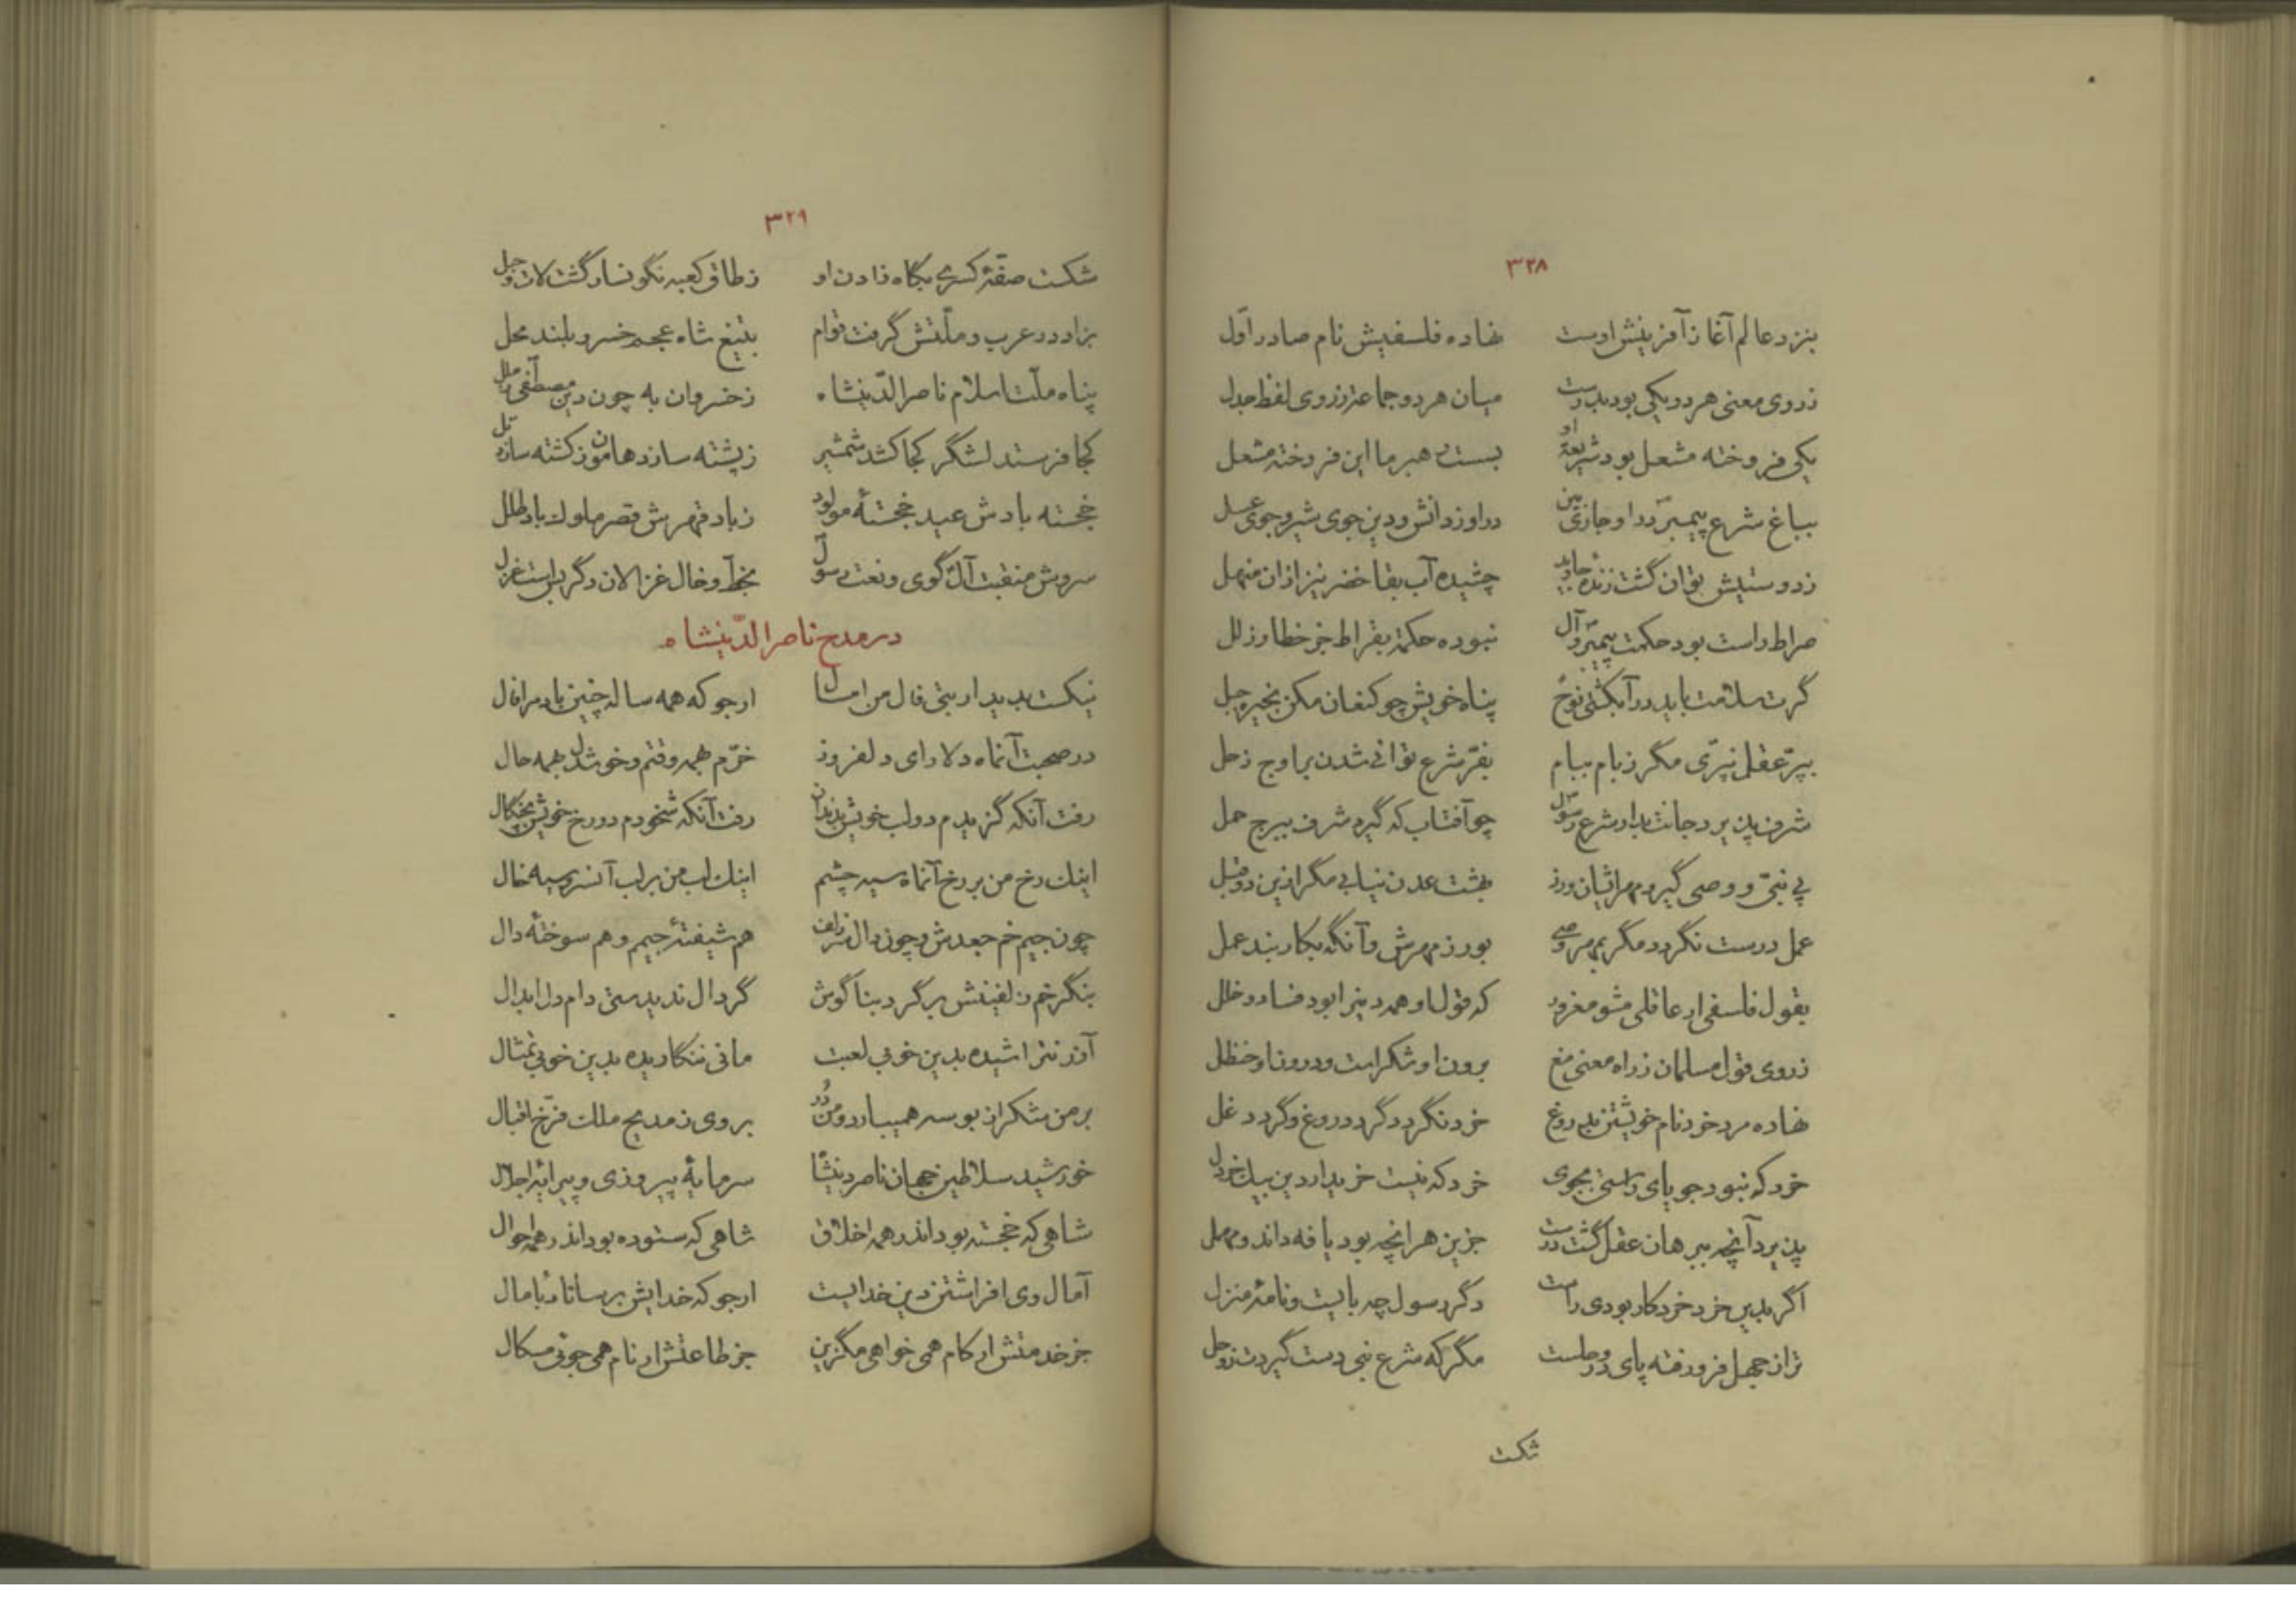 ۳۲۸
بنزد عالم آغاز آفرینش اوست نهاده فلسفیش نام صادر اوّل
ز روی معنی هر دو یکی بود بدرست میان هر دو جماعت ز روی لفظ جدل
یکی فروخته مشعل بود شریعة او بست رهبر ما این فروخته مشعل
بباغ شرع پیمبر درا و جاری بین درا و ز دانش و دین جوی شیر و جوی عسل
ز دوستیش توان گشت زنده جاوید چشیده آب بقا خضر نیز ازان منهل
صراط راست بود حکمت پیمبر و آل نبوده حکمة بقراط جز خطا و زلل
گرت سلامت باید درآ بکشتی نوح پناه خویش چو کنعان مکن بخیره جبل
بپرّ عقل نپرّی مگر ز بام ببام بفرّ شرع توانی شدن بر اوج زحل
شرف پذیرد جانت بدار شرع رسول چو آفتاب که گیرد شرف ببرج حمل
پی نبیّ و وصی گیر و مهر ایشان ورز بهشت عدن نیابی مگر ازین دو قبل
عمل درست نگردد مگر بمهر وصی بورز مهرش و آنگه بکار بند عمل
بقول فلسفی ار عاقلی مشو مغرور که قول او همه دین را بود فساد و خلل
ز روی قول مسلمان ز راه معنی مغ برون او شکرست و درون او حنظل
نهاده مرد خرد نام خویشتن بدروغ خرد نگردد گرد دروغ و گرد دغل
خرد که نبود جویای راستی بجوی خرد که نیست خریدار دین بیک خردل
پذیرد آنچه ببرهان عقل گشت درست جزین هر آنچه بود یافه داند و مهمل
اگر بدین خرد خرد کار بودی راست دگر رسول چه بایست و نامهٔ منزل
ترا ز جهل فرو رفته پای در وحلست مگر که شرع نبی دست گیردت ز وحل
شکت
۳۲۹
شکست صفّهٔ کسری بگاه زادن او ز طاق کعبه نگونسار گشت لات و هبل
بزاد در عرب و ملّتش گرفت قوام بتیغ شاه عجم خسرو بلند محل
پناه ملّت اسلام ناصرالدّینشاه ز خسروان به چون دین مصطفی ز ملل
کجا فرستد لشگر کجا کشد شمشیر ز پشته سازد هامون ز کشته سازد تل
خجسته بادش عید خجستهٔ مولود ز باد قهرش قصر ملوک باد طلل
سروش منقبت آل گوی و نعت رسول بخطّ و خال غزالان دگر بس است غزل
در مدح ناصرالدّینشاه
نیکست بدیدار بتی فال من امسال ارجو که همه ساله چنین باد مرا فال
در صحبت آنماه دلارای دلفروز خرّم همه وقتم و خوشدل همه حال
رفت آنکه گزیدم دو لب خویش بدندان رفت آنکه شخودم دو رخ خویش بچنگال
اینک رخ من بر رخ آنماه سیه چشم اینک لب من بر لب آنسرو سیه خال
چون جیم خم جعدش و چون دال سر زلف هم شیفتهٔ جیم و هم سوختهٔ دال
بنگر خم زلفینش بر گرد بناگوش گر دال ندیدستی دام دل ابدال
آزر نتراشیده بدین خوبی لعبت مانی ننگاریده بدین خوبی تمثال
بر من شکر از بوسه همیبارد و من درّ بر وی ز مدیح ملک فرّخ اقبال
خورشید سلاطین جهان ناصر دینشاه سرمایهٔ پیروزی و پیرایهٔ اجلال
شاهی که خجسته بود اندر همه اخلاق شاهی که ستوده بود اندر همه احوال
آمال وی افراشتن دین خدایست ارجو که خدایش برساناد بآمال
جز خدمتش ار کام همی خواهی مگزین جز طاعتش ار نام همی جوئی مسکال